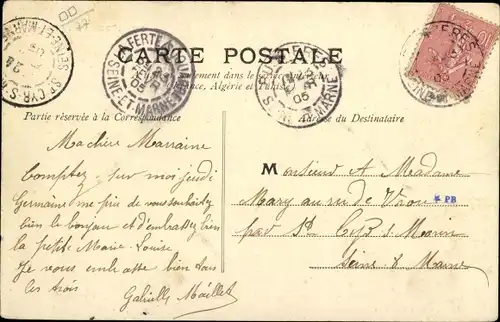 CARTE POSTALE
FERTÉ
SEINE-ET-MARNE
05
SEINE-ET-MARNE
ST CYR-S
24
MARNE
05
seulement dans le service
Algérie et
Partie réservée à la Correspondance
Adresse du Destinataire
Ma chère Marraine
Comptez sur moi jeudi
Germaine me prie de vous souhaiter
bien le bonjour et d'embrasser bien
la petite Marie-Louise
Je vous embrasse bien tous
les trois
Gabrielle Maillet
M onsieur et Madame
Mary au ru de Vrou
PB
par St Cyr S. Morin
Seine & Marne